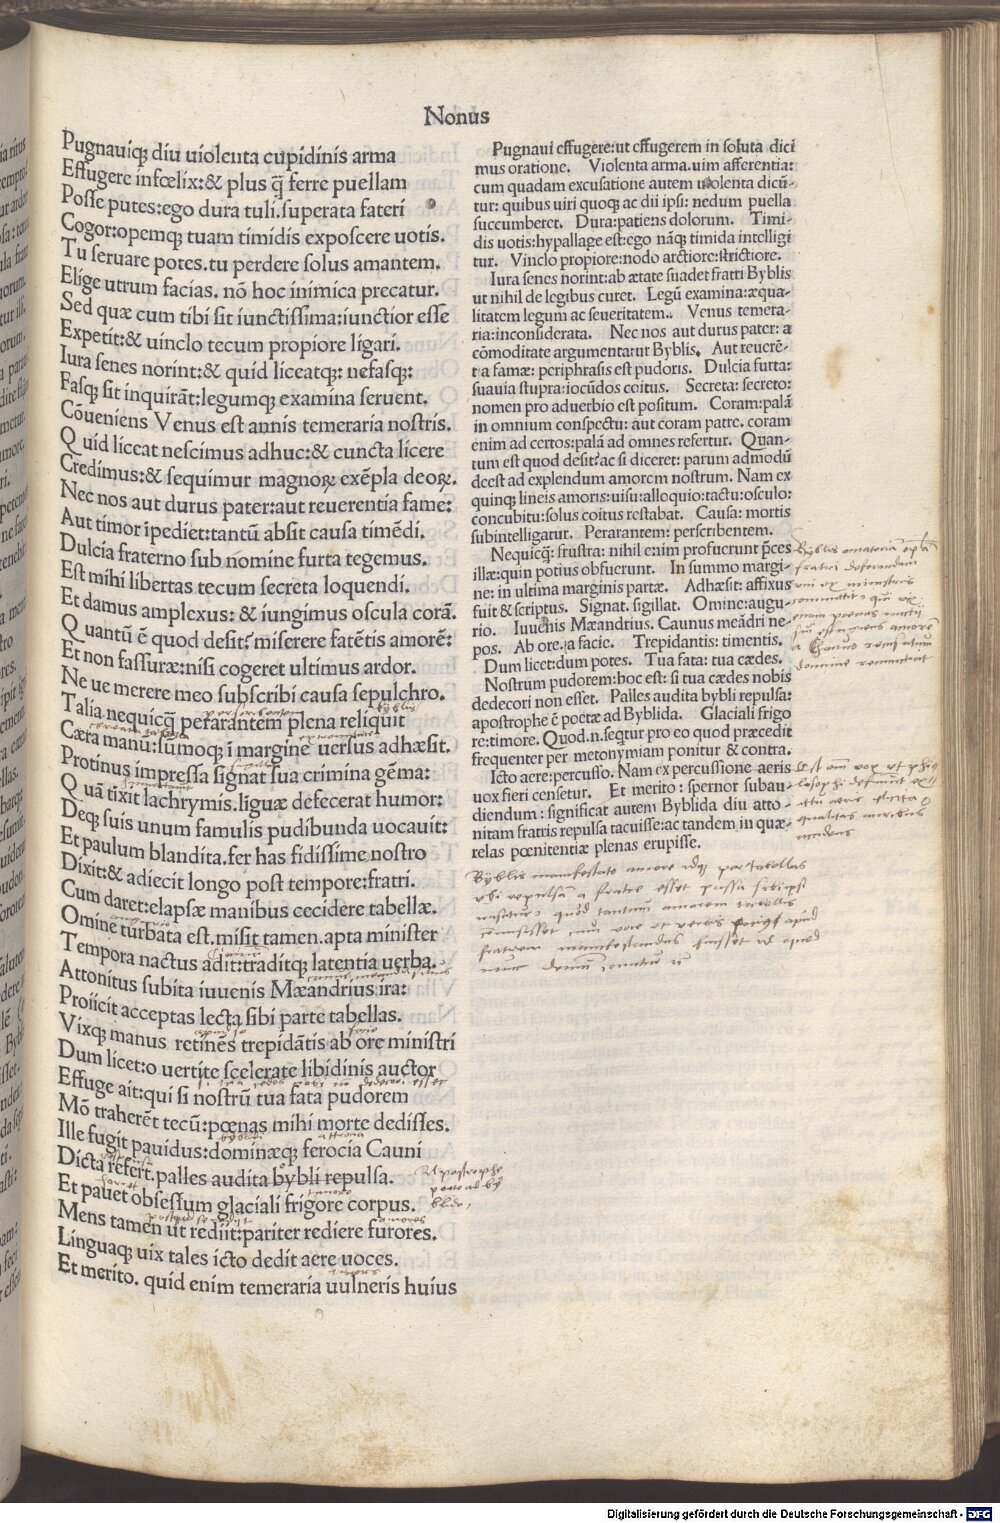 Nonus
Pugnauiqꝫ diu uiolenta cupidinis arma
Effugere infœlix:& plus q̃ ferre puellam
Posse putes:ego dura tuli.superata fateri
Cogor:opemqꝫ tuam timidis exposcere uotis.
Tu seruare potes.tu perdere solus amantem.
Elige utrum facias. nõ hoc inimica precatur.
Sed quæ cum tibi sit iunctissima:iunctior esse
Expetit:& uinclo tecum propiore ligari.
Iura senes norint:& quid liceatqꝫ: nefasqꝫ:
Fasqꝫ sit inquirãt:legumqꝫ examina seruent.
Cõueniens Venus est annis temeraria nostris.
Quid liceat nescimus adhuc:& cuncta licere
Credimus:& sequimur magnoꝝ exẽpla deoꝝ.
Nec nos aut durus pater:aut reuerentia fame:
Aut timor ĩpediet:tantũ absit causa timẽdi.
Dulcia fraterno sub nomine furta tegemus.
Est mihi libertas tecum secreta loquendi.
Et damus amplexus: & iungimus oscula corã.
Quantũ ẽ quod desit? miserere fatẽtis amorẽ:
Et non fassuræ:nisi cogeret ultimus ardor.
Ne ue merere meo subscribi causa sepulchro.
Talia nequicq̃ perarantem plena reliquit
Cæra manu:sumoqꝫ ĩ margine uersus adhæsit.
Protinus impressa signat sua crimina gẽma:
Quã tixit lachrymis.liguæ defecerat humor:
Deqꝫ suis unum famulis pudibunda uocauit:
Et paulum blandita.fer has fidissime nostro
Dixit:& adiecit longo post tempore:fratri.
Cum daret:elapsæ manibus cecidere tabellæ.
Omine turbata est.misit tamen.apta minister
Tempora nactus adit:traditqꝫ latentia uerba.
Attonitus subita iuuenis Mæandrius ira:
Proiicit acceptas lecta sibi parte tabellas.
Vixqꝫ manus retinẽs trepidãtis ab ore ministri
Dum licet:o uertite scelerate libidinis auctor
Effuge ait:qui si nostrũ tua fata pudorem
Mõ traherẽt tecũ:pœnas mihi morte dedisses.
Ille fugit pauidus:dominæqꝫ ferocia Cauni
Dicta refert.palles audita bybli repulsa.
Et pauet obsessum glaciali frigore corpus.
Mens tamen ut rediit:pariter rediere furores.
Linguaqꝫ uix tales icto dedit aere uoces.
Et merito. quid enim temeraria uulneris huius
Pugnaui effugere:ut effugerem in soluta dici
mus oratione. Violenta arma.uim afferentia:
cum quadam excusatione autem uiolenta dicũ-
tur: quibus uiri quoqꝫ ac dii ipsi: nedum puella
succumberet. Dura:patiens dolorum. Timi-
dis uotis:hypallage est:ego nãqꝫ timida intelligi
tur. Vinclo propiore:nodo arctiore:strictiore.
Iura senes norint:ab ætate suadet fratri Byblis
ut nihil de legibus curet. Legũ examina:æqua-
litatem legum ac seueritatem. Venus temera-
ria:inconsiderata. Nec nos aut durus pater: a
cõmoditate argumentatur Byblis. Aut reuerẽ-
tia famæ: periphrasis est pudoris. Dulcia furta:
suauia stupra:iocũdos coitus. Secreta: secreto:
nomen pro aduerbio est positum. Coram:palã
in omnium conspectu: aut coram patre. coram
enim ad certos:palã ad omnes refertur. Quan-
tum est quod desit?ac si diceret: parum admodũ
deest ad explendum amorem nostrum. Nam ex
quinqꝫ lineis amoris:uisu:alloquio:tactu:osculo:
concubitu:solus coitus restabat. Causa: mortis
subintelligatur. Perarantem: perscribentem.
Nequicq̃: frustra: nihil enim profuerunt p̃ces
illæ:quin potius obfuerunt. In summo margi-
ne: in ultima marginis parte. Adhæsit: affixus
fuit & scriptus. Signat. sigillat. Omine:augu-
rio. Iuuenis Mæandrius. Caunus meãdri ne-
pos. Ab ore.a facie. Trepidantis: timentis.
Dum licet:dum potes. Tua fata: tua cædes.
Nostrum pudorem:hoc est: si tua cædes nobis
dedecori non esset. Palles audita bybli repulsa:
apostrophe ẽ poetæ ad Byblida. Glaciali frigo
re:timore. Quod.n.seqtur pro eo quod præcedit
frequenter per metonymiam ponitur & contra.
Icto aere:percusso. Nam ex percussione aeris
uox fieri censetur. Et merito: spernor subau-
diendum: significat autem Byblida diu atto-
nitam fratris repulsa tacuisse:ac tandem in quæ-
relas pœnitentiæ plenas erupisse.
Byblis manifestato amore
Digitalisierung gefördert durch die Deutsche Forschungsgemeinschaft - DFG